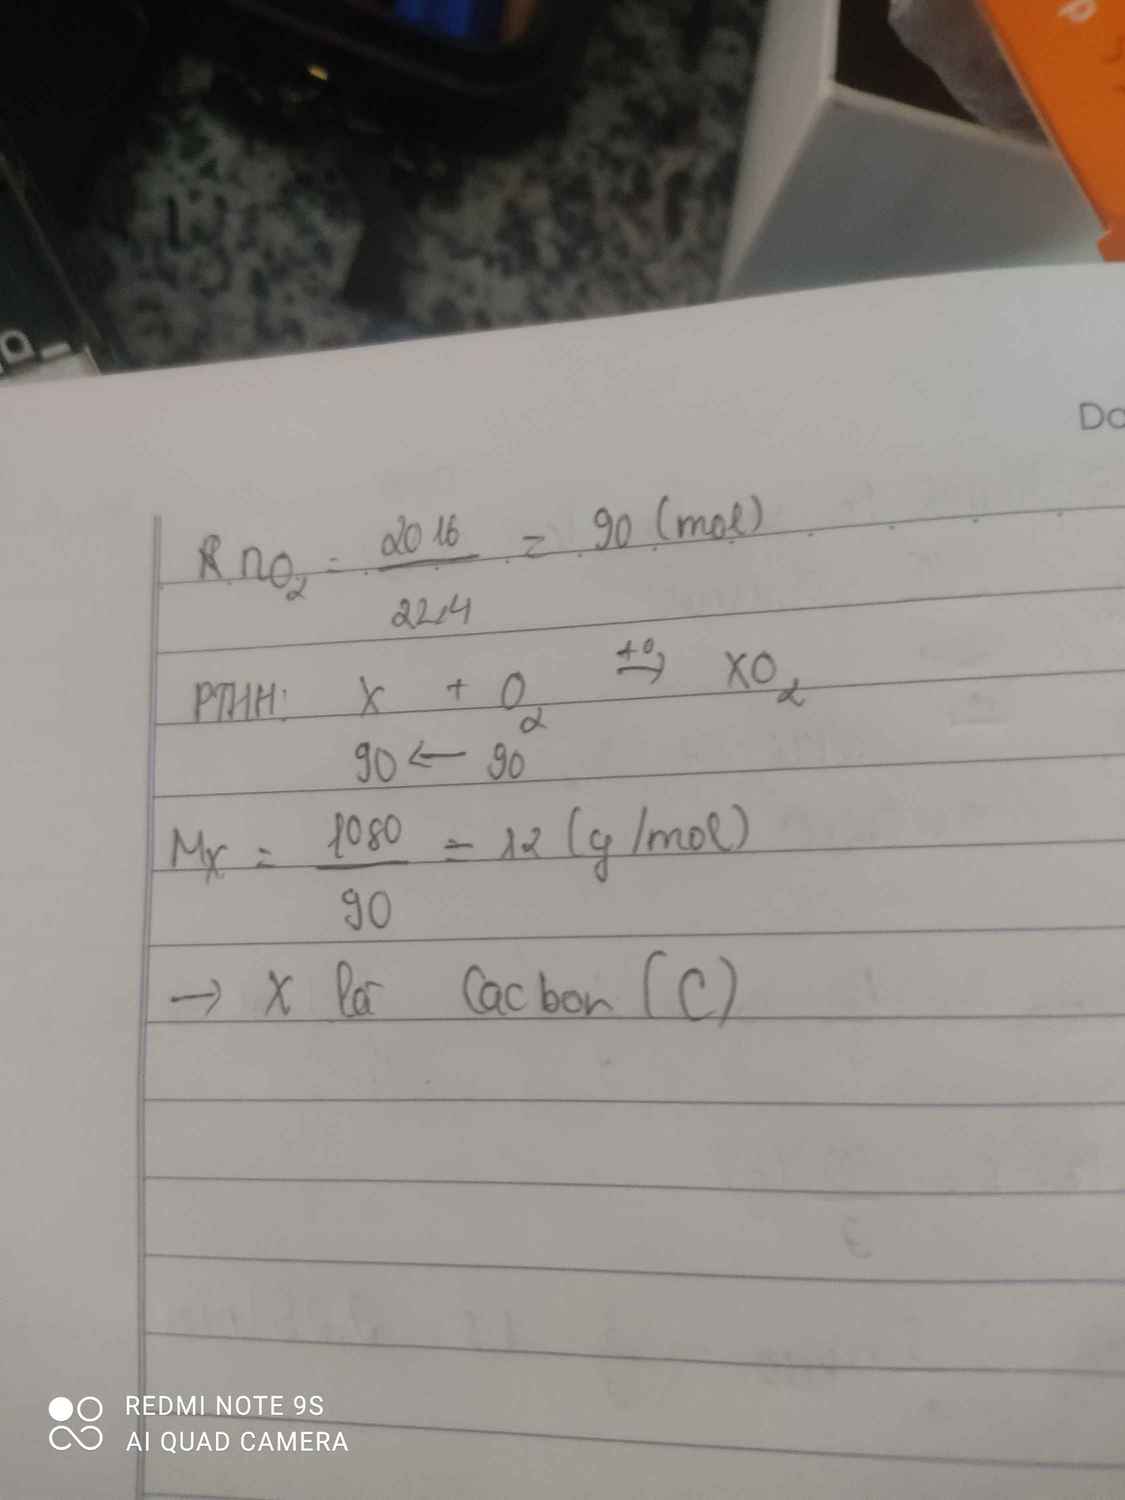 Do
nO₂ = 2016 / 22,4 = 90 (mol)
PTHH: X + O₂ +0→ XO₂
90 ← 90
Mx = 1080 / 90 = 12 (g/mol)
→ X là Cacbon (C)
REDMI NOTE 9S
AI QUAD CAMERA